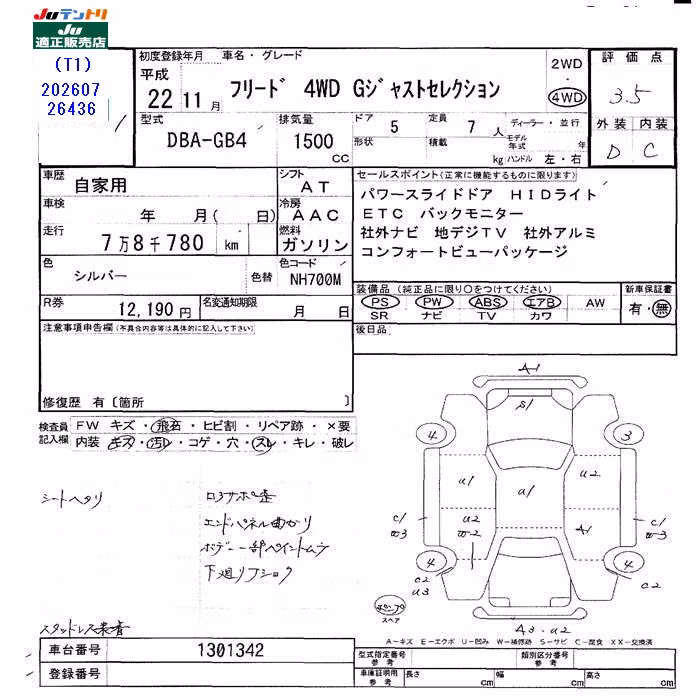 Juテントリ
Ju
適正販売店
(T1)
202607
26436
初度登録年月
車名・グレード
平成
22 11月
フリード 4WD Gジャストセレクション
2WD
・
4WD
評価点
3.5
外装 内装
D C
型式
DBA-GB4
排気量
1500
CC
ドア
5
形状
定員
7
人
積載
kg
ディーラー・並行
モデル
年式
年
ハンドル 左・右
車歴
自家用
シフト
AT
車検
年 月( 日)
冷房
AAC
走行
7万8千780 km
燃料
ガソリン
色
シルバー
色替
色コード
NH700M
R券
12,190円
名変通知期限
月 日
セールスポイント(正常に機能するものに限ります)
パワースライドドア HIDライト
ETC バックモニター
社外ナビ 地デジTV 社外アルミ
コンフォートビューパッケージ
装備品 (純正品に限り○をつけてください)
PS PW ABS エアB AW
SR ナビ TV カワ
新車保証書
有・無
後日品
注意事項申告欄(不具合内容等は具体的に記入して下さい)
修復歴 有〔箇所 〕
検査員
記入欄
FW キズ・飛石・ヒビ割・リペア跡・×要
内装 キズ・汚レ・コゲ・穴・スレ・キレ・破レ
シートヘタリ
ロアサポ歪
エンドパネル曲がり
ボデー一部ペイントムラ
下廻りフショク
スタッドレス装着
A1
S1
4
3
u1
a1
u2
u2
w2
A1
c1
w3
c1
w3
4
4
c2
u3
c2
スペア
A3・u2
A-キズ E-エクボ U-凹み W-補修跡 S-サビ C-腐食 XX-交換済
車台番号
1301342
登録番号
型式指定番号
参考
類別区分番号
参考
車庫証明用
参考
長さ
cm
幅
cm
高さ
cm